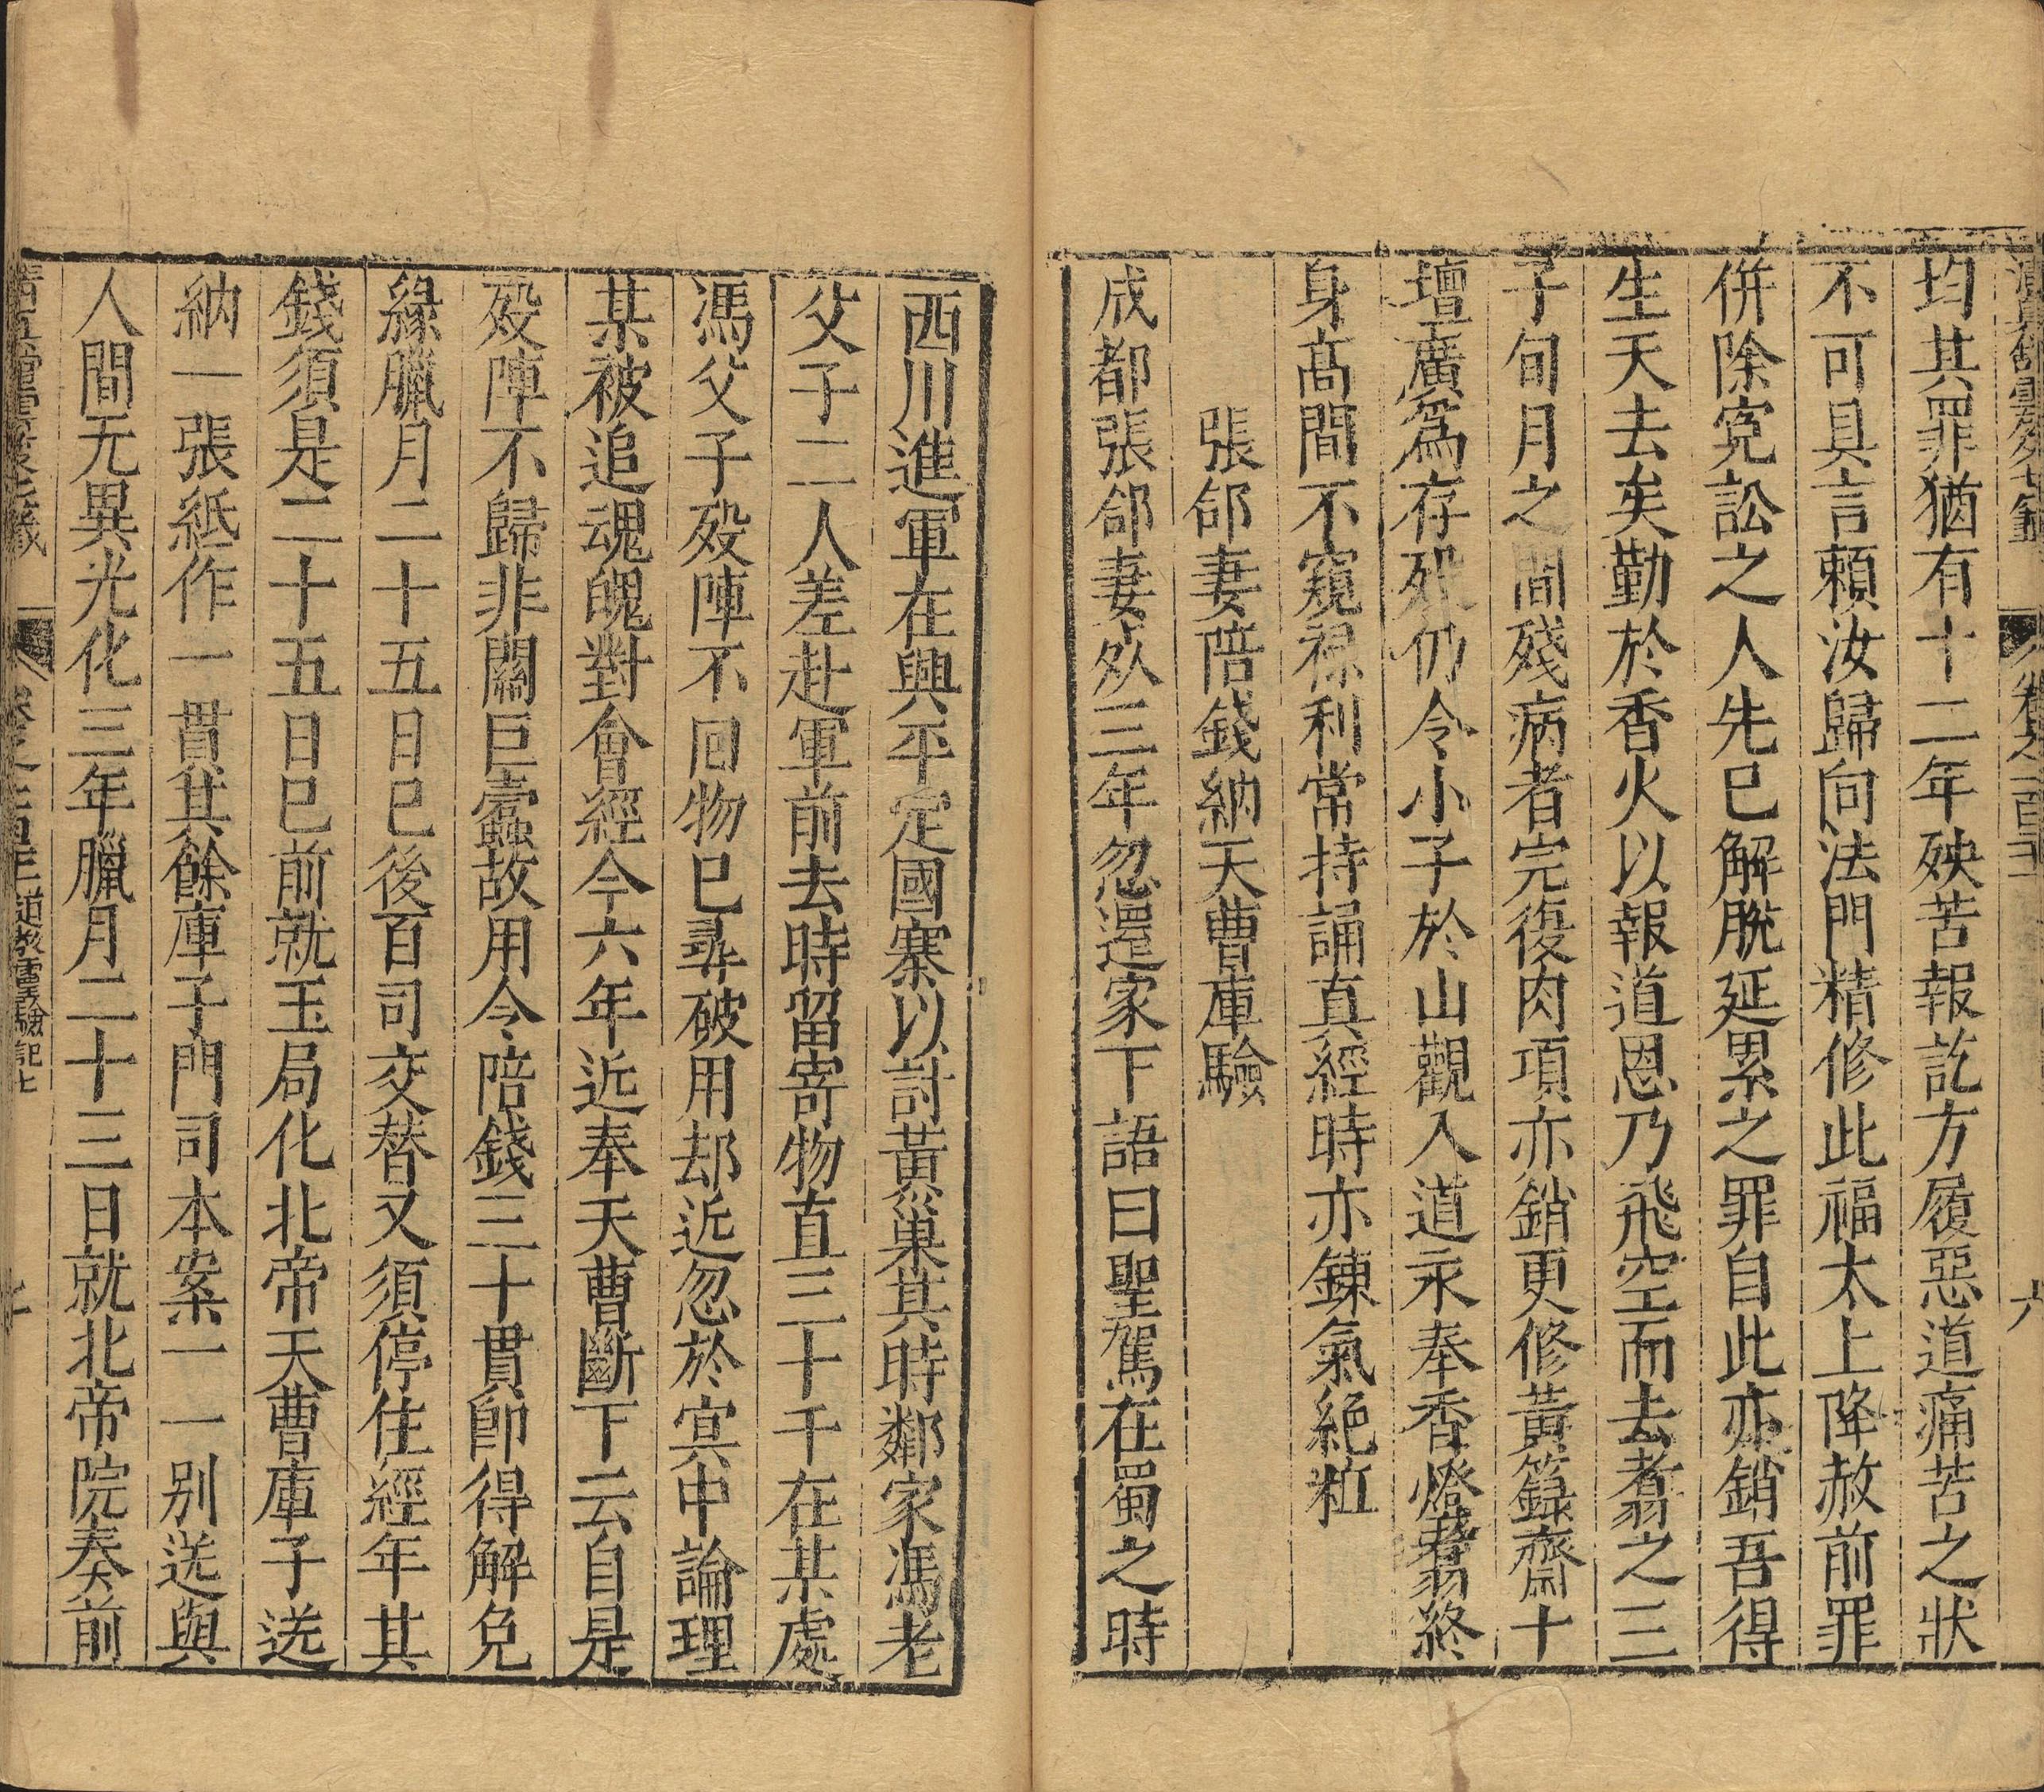 均其罪猶有十二年殃苦報訖方履惡道痛苦之狀
不可具言賴汝歸向法門精修此福太上降赦前罪
併除寃訟之人先巳解脫延累之罪自此亦銷吾得
生天去矣勤於香火以報道恩乃飛空而去翥之三
子旬月之間殘病者完復肉項亦銷更修黃籙齋十
壇廣爲存殁仍令小子於山觀入道永奉香燈翥終
身髙閒不窺祿利常持誦真經時亦鍊氣絶粒
張郃妻陪錢納天曹庫驗
成都張郃妻死三年忽還家下語曰聖駕在蜀之時
西川進軍在興平定國寨以討黃巢其時鄰家馮老
父子二人差赴軍前去時留寄物直三十千在某處
馮父子殁陣不回物巳尋破用却近忽於㝠中論理
某被追魂魄對會經今六年近奉天曹斷下云自是
殁陣不歸非關巨蠹故用令陪錢三十貫卽得解免
緣臘月二十五日巳後百司交替又須停住經年其
錢須是二十五日巳前就玉局化北帝天曹庫子送
納一張紙作一貫其餘庫子門司本案一一別送與
人間无異光化三年臘月二十三日就北帝院奏前